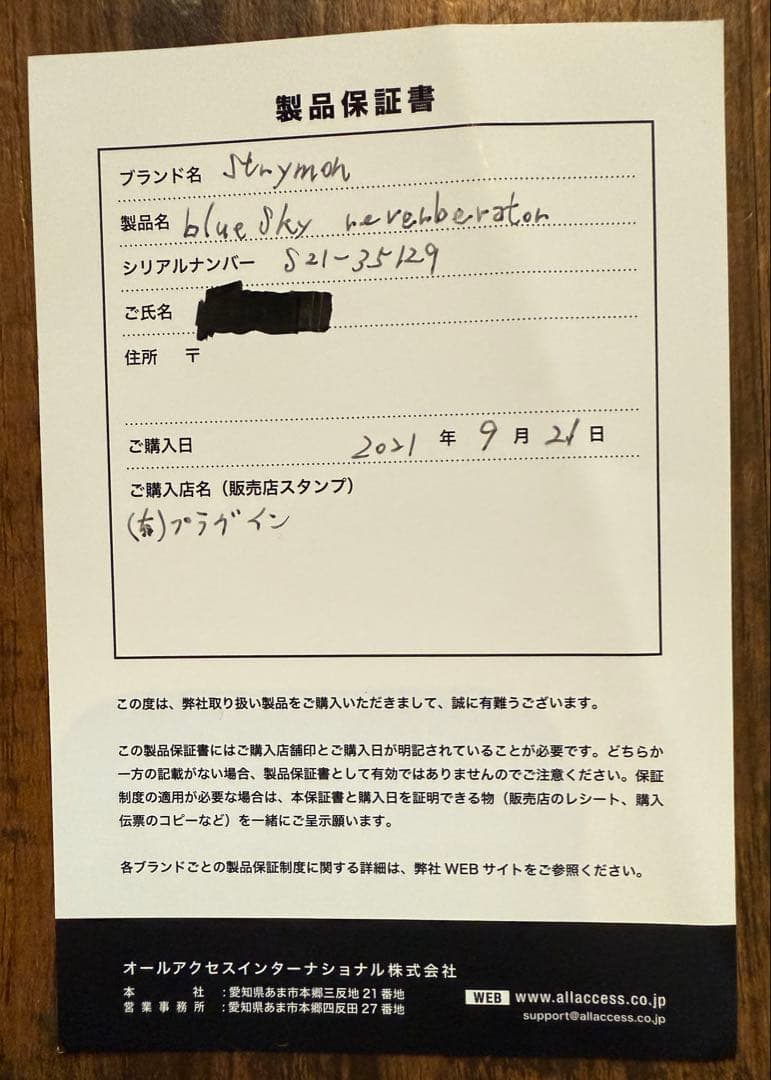 製品保証書
ブランド名 Strymon
製品名 blueSky reverberator
シリアルナンバー S21-35129
ご氏名
住所 〒
ご購入日 2021 年 9 月 21 日
ご購入店名（販売店スタンプ）
(有)プラグイン
この度は、弊社取り扱い製品をご購入いただきまして、誠に有難うございます。
この製品保証書にはご購入店舗印とご購入日が明記されていることが必要です。どちらか
一方の記載がない場合、製品保証書として有効ではありませんのでご注意ください。保証
制度の適用が必要な場合は、本保証書と購入日を証明できる物（販売店のレシート、購入
伝票のコピーなど）を一緒にご呈示願います。
各ブランドごとの製品保証制度に関する詳細は、弊社 WEB サイトをご参照ください。
オールアクセスインターナショナル株式会社
本社：愛知県あま市本郷三反地 21 番地
営業事務所：愛知県あま市本郷四反田 27 番地
WEB www.allaccess.co.jp
support@allaccess.co.jp